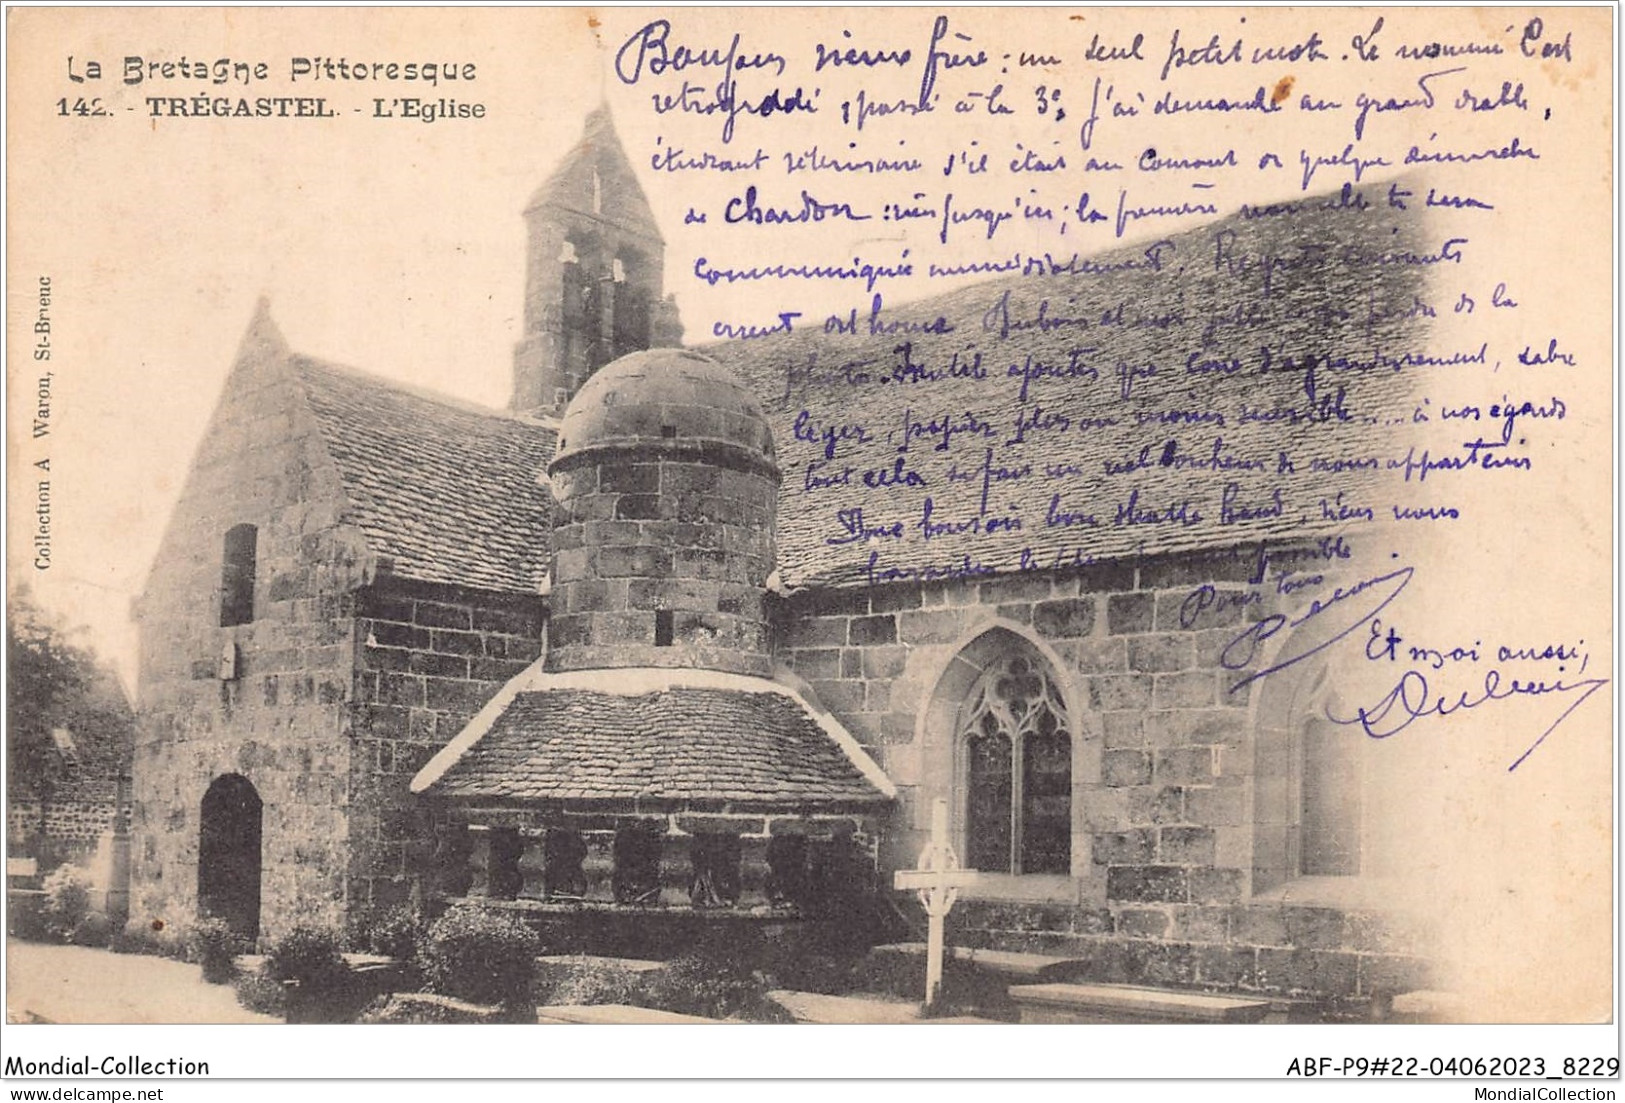 La Bretagne Pittoresque
142. - TRÉGASTEL. - L'Eglise
Collection A Waron, St-Brieuc
Bonjour vieux frère : un seul petit mot. Le nommé
retrogradé, passé à la 3e, j'ai demandé au grand diable,
étudiant vétérinaire s'il était au courant de quelque démarche
de Chardon : rien jusqu'ici ; la première nouvelle te sera
communiquée immédiatement. Regrets
Dubois et moi perdu de la
photo. Inutile ajouter que cône d'agrandissement, sable
léger, papier plus ou moins sensible..... à nos égards
tout cela se fait un réel bonheur de nous appartenir
Donc bonsoir bon shake hand, viens nous
le possible
Pour tous
Et moi aussi,
Mondial-Collection
ABF-P9#22-04062023_8229
MondialCollection.com
MondialCollection